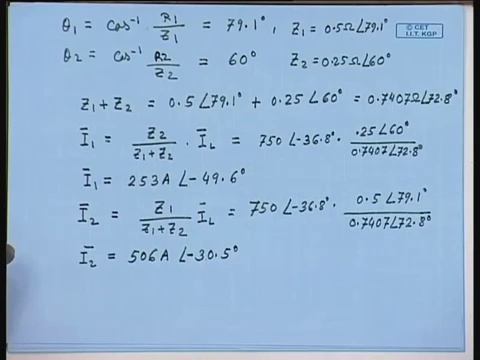 θ1 = cos⁻¹ R1/Z1 = 79.1°, Z1 = 0.5Ω∠79.1°
© CET I.I.T. KGP
θ2 = cos⁻¹ R2/Z2 = 60° Z2 = 0.25Ω∠60°
Z1 + Z2 = 0.5∠79.1° + 0.25∠60° = 0.7407Ω∠72.8°
Ī1 = Z2/(Z1+Z2) · ĪL = 750∠-36.8° · .25∠60°/0.7407∠72.8°
Ī1 = 253A ∠-49.6°
Ī2 = Z1/(Z1+Z2) ĪL = 750∠-36.8° · 0.5∠79.1°/0.7407∠72.8°
Ī2 = 506A ∠-30.5°